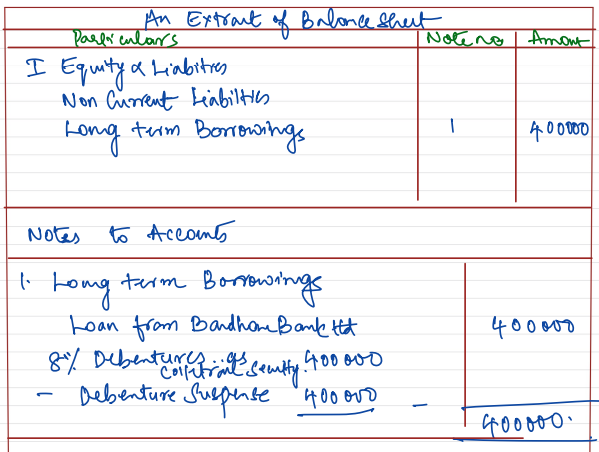 An Extract of Balance Sheet
Particulars Note no Amount
I Equity & Liabilities
Non Current Liabilities
Long term Borrowings 1 400000
Notes to Accounts
1. Long term Borrowings
Loan from Bandhan Bank ltd 400000
8% Debentures as 400000
Collateral Security.
- Debenture Suspense 400000 -
400000.